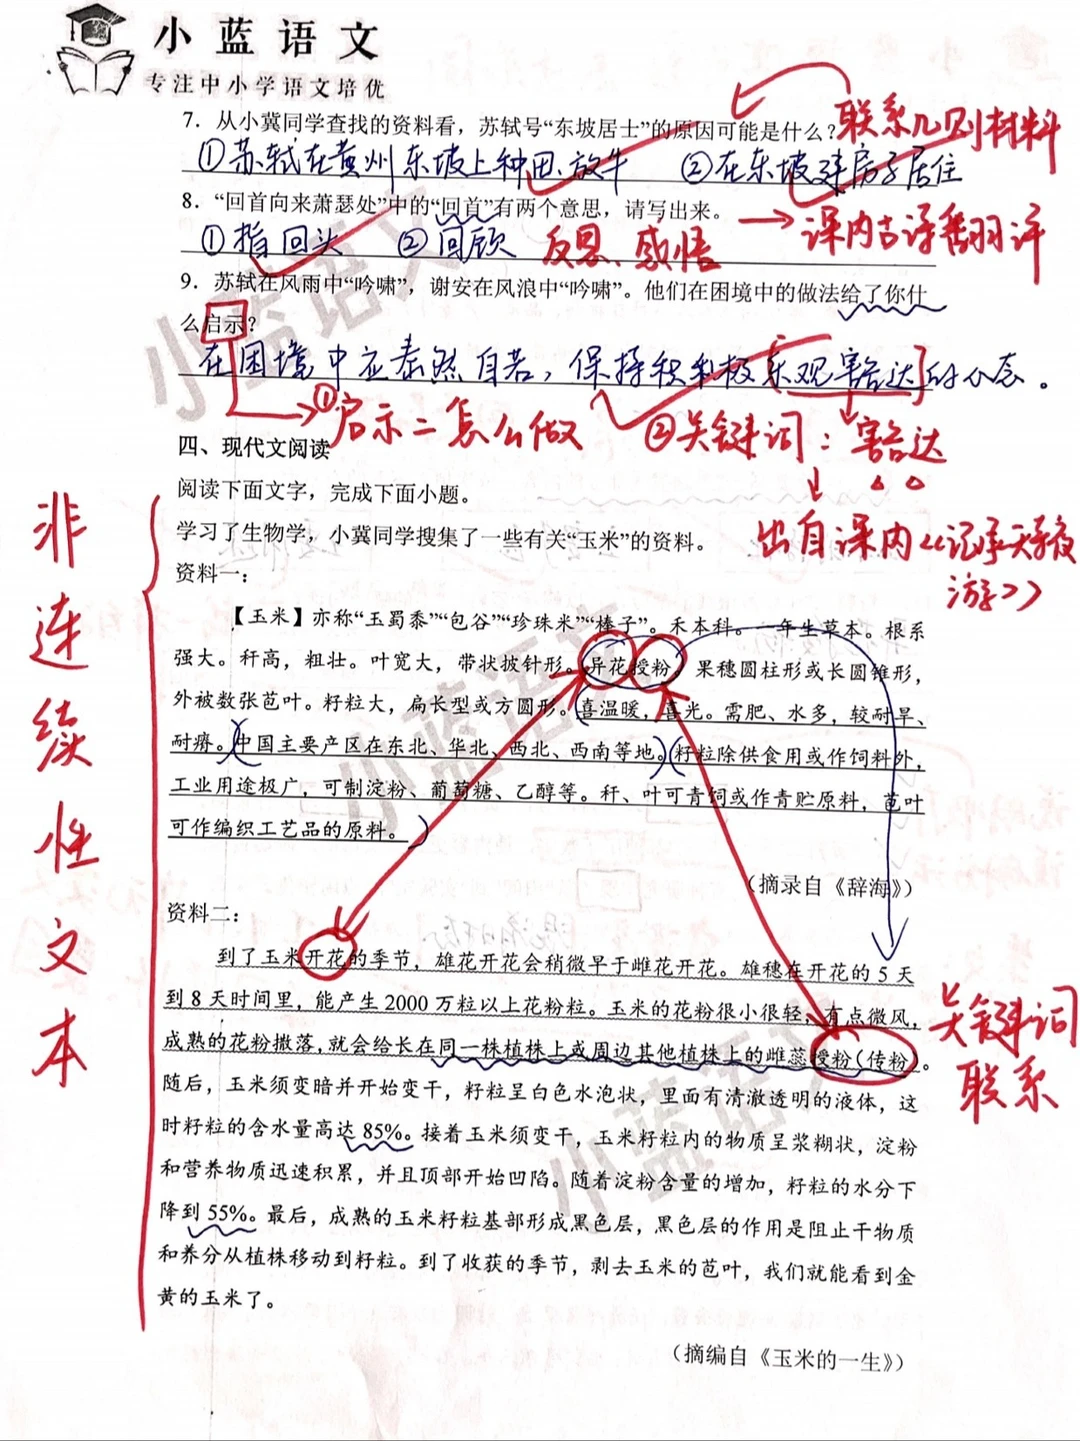 小蓝语文
专注中小学语文培优
7. 从小冀同学查找的资料看，苏轼号“东坡居士”的原因可能是什么？
联系几则材料
①苏轼在黄州东坡上种田、放牛 ②在东坡建房子居住
8. “回首向来萧瑟处”中的“回首”有两个意思，请写出来。
→课内古诗翻译
①指回头 ②回顾 反思、感悟
9. 苏轼在风雨中“吟啸”，谢安在风浪中“吟啸”。他们在困境中的做法给了你什
么启示？
在困境中应泰然自若，保持积极乐观豁达的心态。
①启示=怎么做 ②关键词：豁达
四、现代文阅读
阅读下面文字，完成下面小题。
出自课内《记承天寺夜
游》
学习了生物学，小冀同学搜集了一些有关“玉米”的资料。
资料一：
非连续性文本
【玉米】亦称“玉蜀黍”“包谷”“珍珠米”“棒子”。禾本科。一年生草本。根系
强大。秆高，粗壮。叶宽大，带状披针形。异花授粉。果穗圆柱形或长圆锥形，
外被数张苞叶。籽粒大，扁长型或方圆形。喜温暖，喜光。需肥、水多，较耐旱、
耐瘠。中国主要产区在东北、华北、西北、西南等地。籽粒除供食用或作饲料外，
工业用途极广，可制淀粉、葡萄糖、乙醇等。秆、叶可青饲或作青贮原料，苞叶
可作编织工艺品的原料。
（摘录自《辞海》）
资料二：
到了玉米开花的季节，雄花开花会稍微早于雌花开花。雄穗在开花的 5 天
到 8 天时间里，能产生 2000 万粒以上花粉粒。玉米的花粉很小很轻，有点微风，
成熟的花粉撒落，就会给长在同一株植株上或周边其他植株上的雌蕊授粉（传粉）。
关键词
联系
随后，玉米须变暗并开始变干，籽粒呈白色水泡状，里面有清澈透明的液体，这
时籽粒的含水量高达 85%。接着玉米须变干，玉米籽粒内的物质呈浆糊状，淀粉
和营养物质迅速积累，并且顶部开始凹陷。随着淀粉含量的增加，籽粒的水分下
降到 55%。最后，成熟的玉米籽粒基部形成黑色层，黑色层的作用是阻止干物质
和养分从植株移动到籽粒。到了收获的季节，剥去玉米的苞叶，我们就能看到金
黄的玉米了。
（摘编自《玉米的一生》）